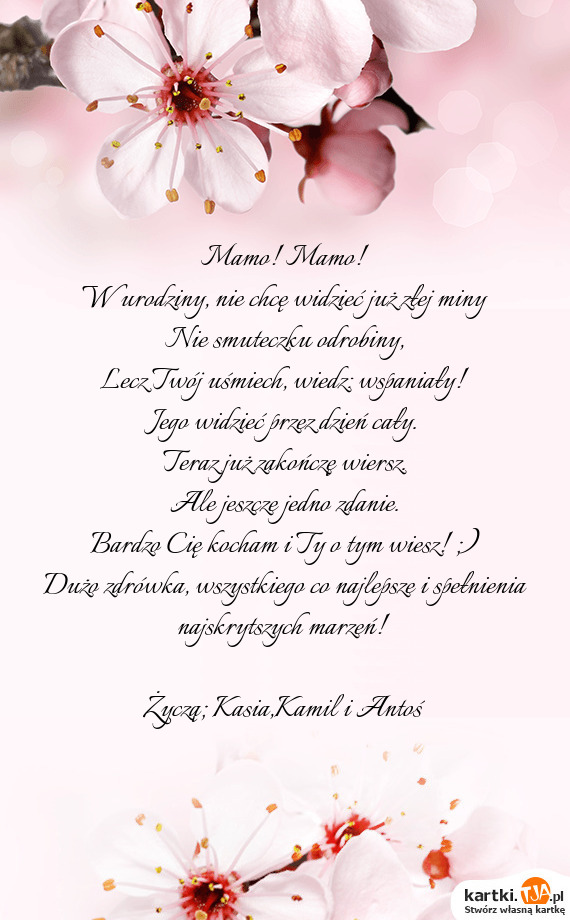 Mamo! Mamo!
W urodziny, nie chcę widzieć już złej miny
Nie smuteczku odrobiny,
Lecz Twój uśmiech, wiedz; wspaniały!
Jego widzieć przez dzień cały.
Teraz już zakończę wiersz,
Ale jeszcze jedno zdanie.
Bardzo Cię kocham i Ty o tym wiesz! ;)
Dużo zdrówka, wszystkiego co najlepsze i spełnienia
najskrytszych marzeń!
Życzą; Kasia,Kamil i Antoś
kartki.TJA.pl
Stwórz własną kartkę